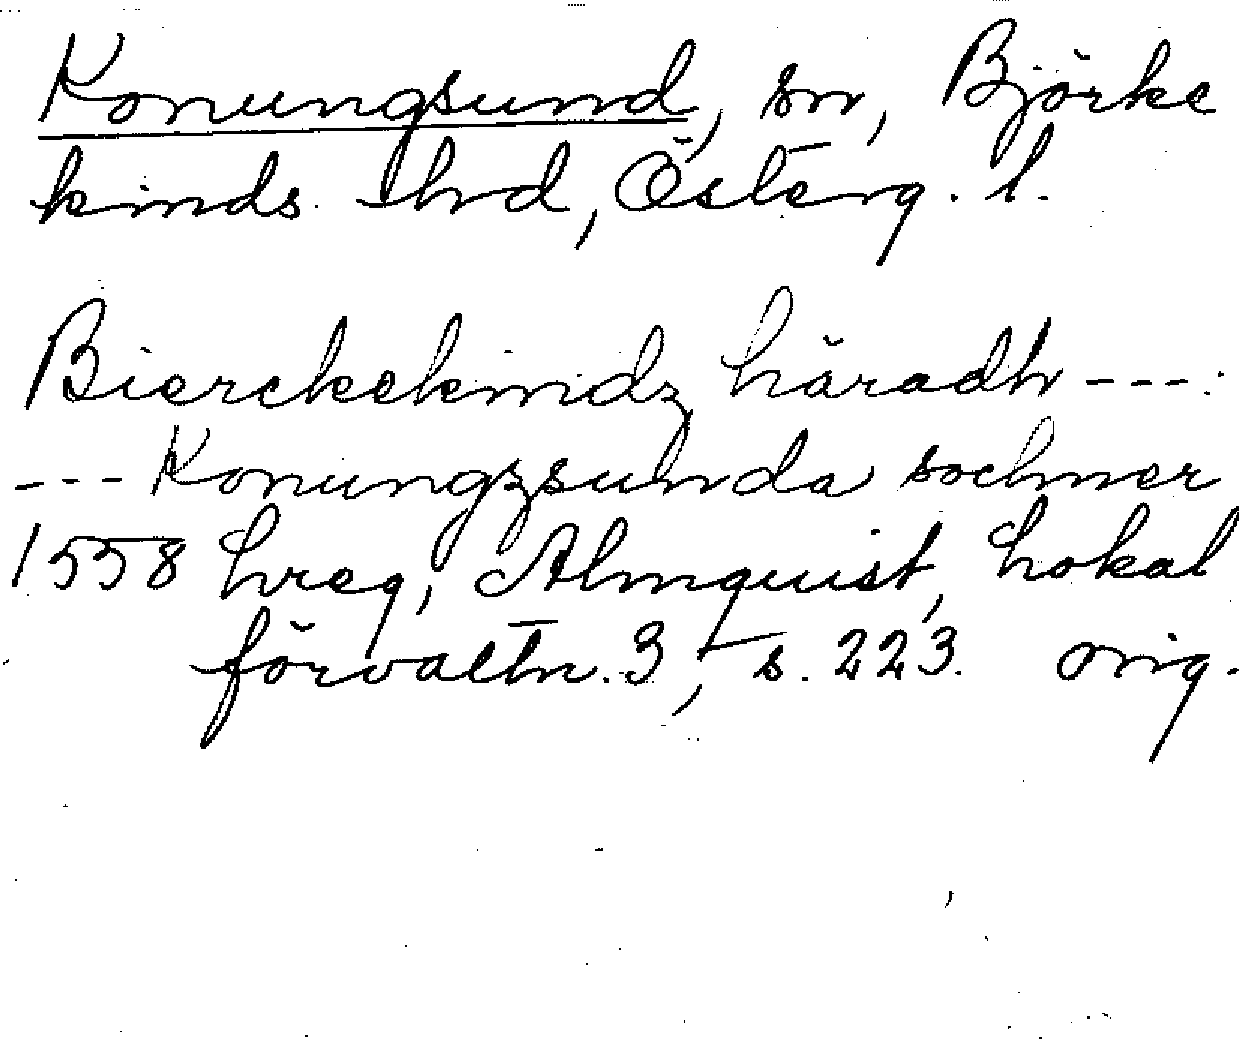 Konungsund, sn, Björke
kinds hd, Österg. l.
Bierckekindz häradh ---
--- Konungzsunda sochner
1558 hreg, Almquist, Lokal
förvaltn. 3, s. 223. orig.